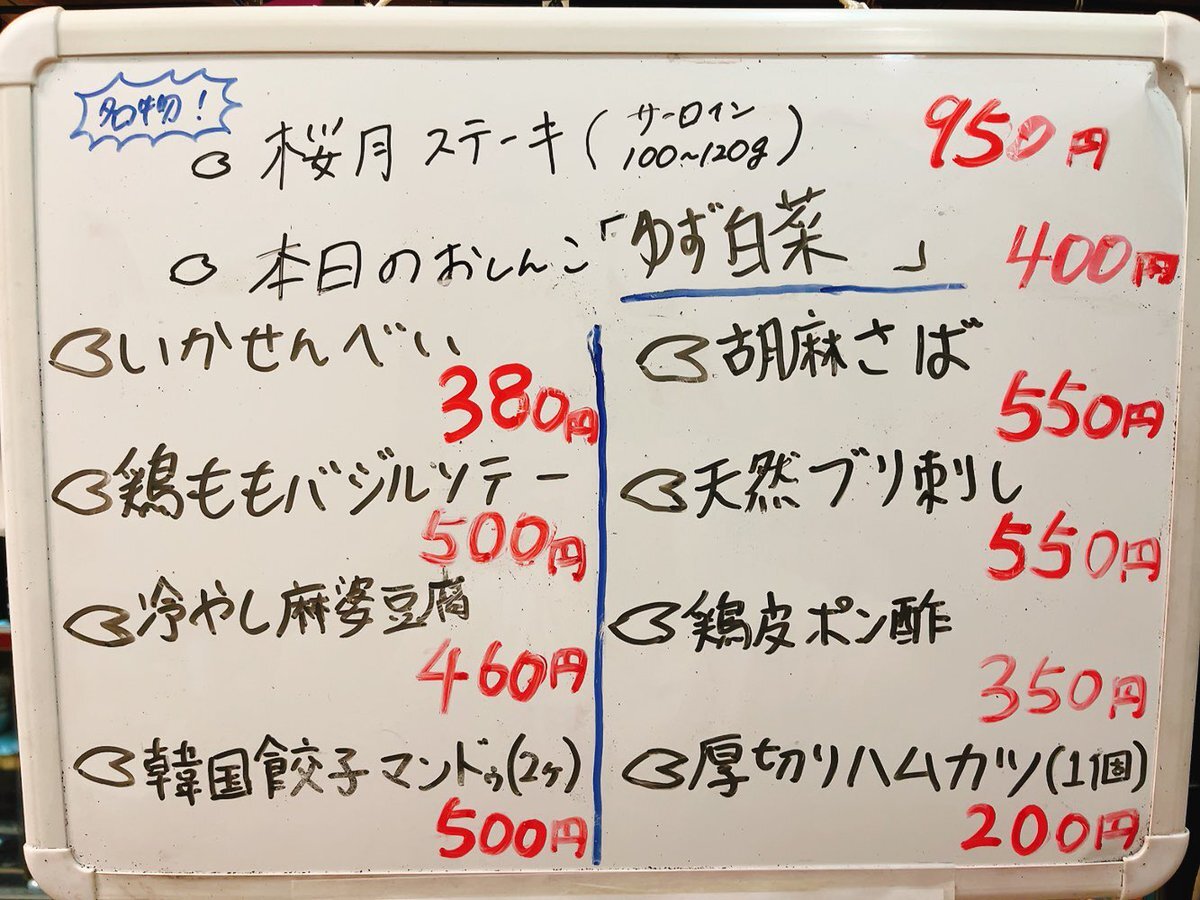 名物!
桜月ステーキ(サーロイン 100~120g) 950円
本日のおしんこ「ゆず白菜 」 400円
いかせんべい
380円
鶏ももバジルソテー
500円
冷やし麻婆豆腐
460円
韓国餃子マンドゥ(2ヶ)
500円
胡麻さば
550円
天然ブリ刺し
550円
鶏皮ポン酢
350円
厚切りハムカツ(1個)
200円